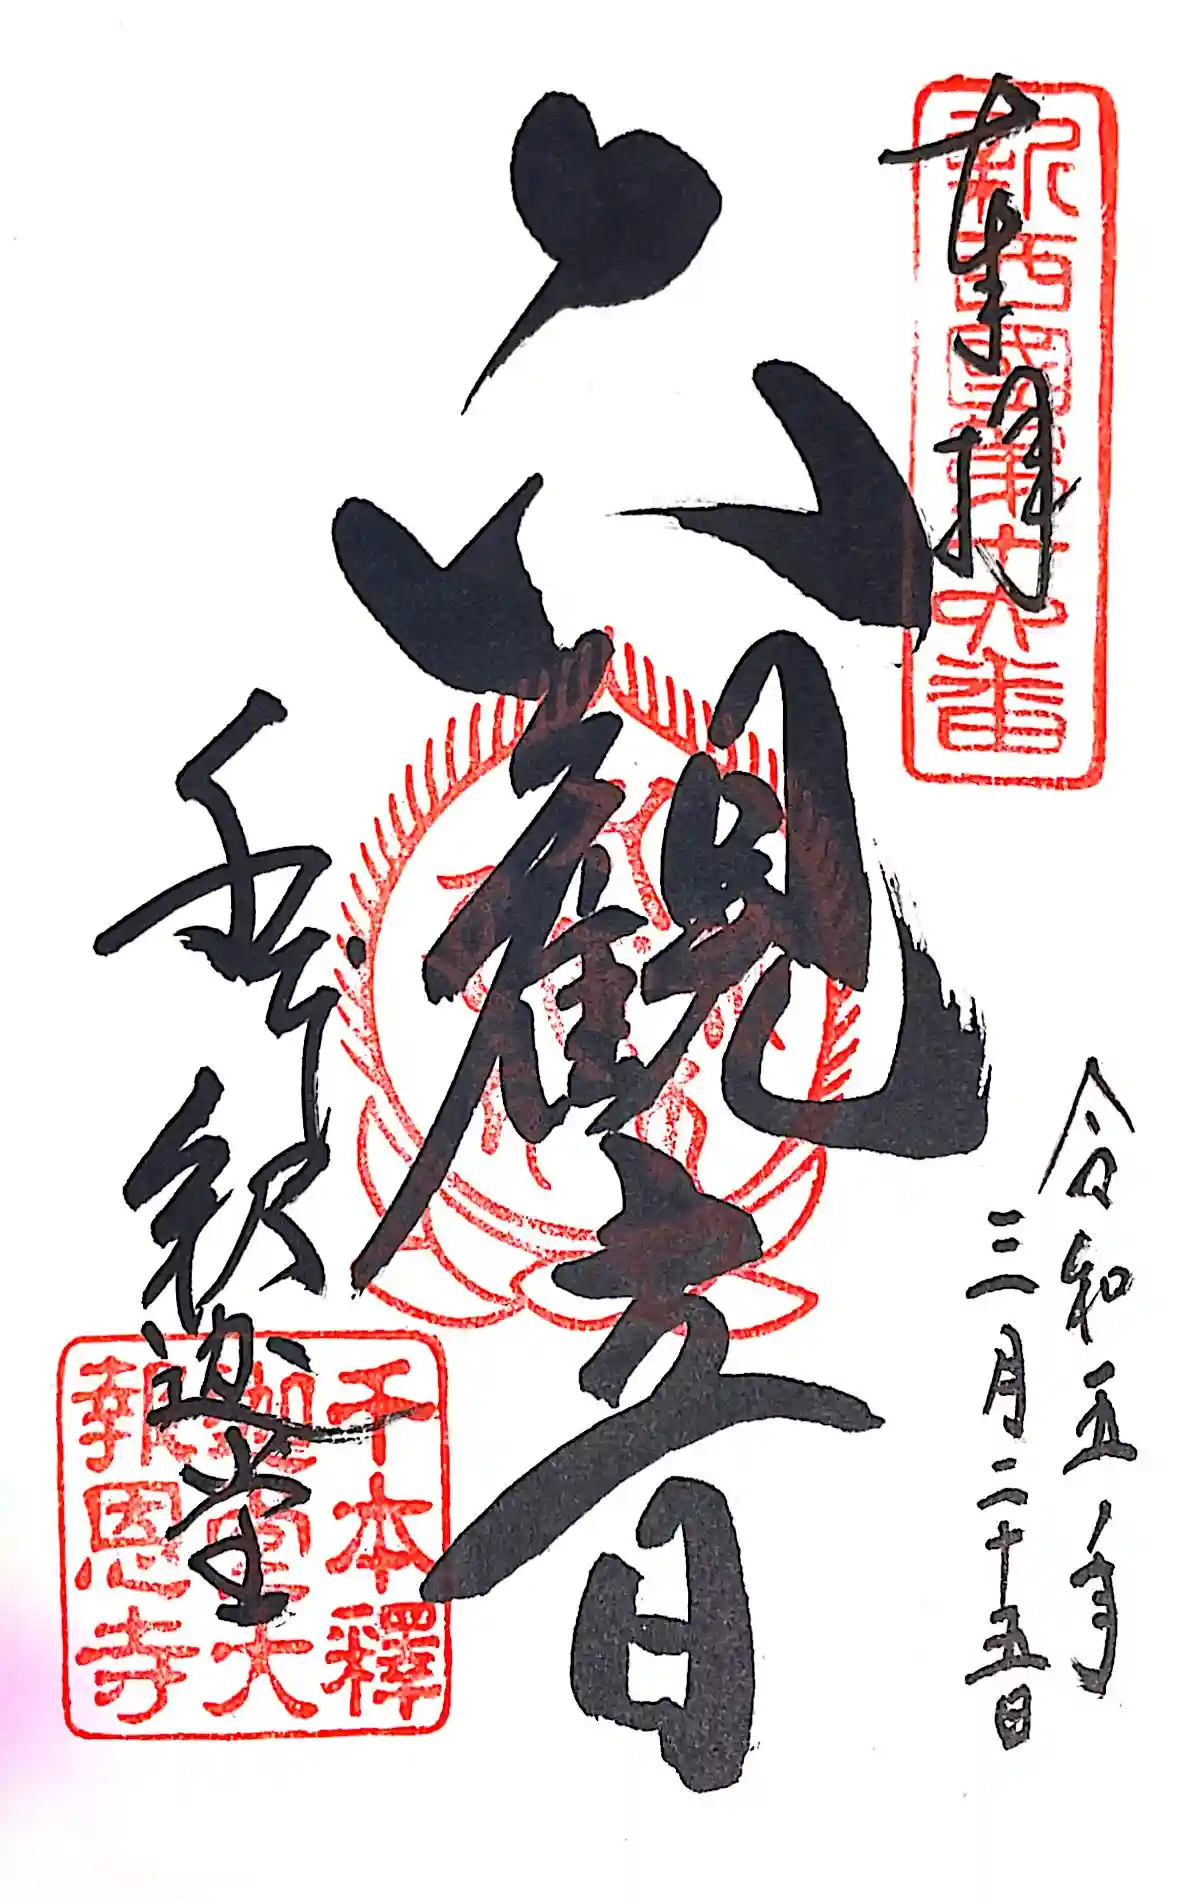 奉拝
新西國第十六番
令和五年
三月二十五日
六観音
千本釈迦堂
千本釋
迦堂大
報恩寺